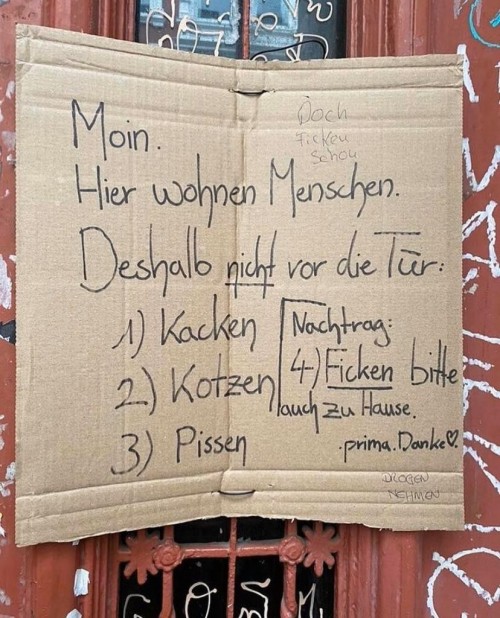 Moin.
Doch
Ficken
Schon
Hier wohnen Menschen.
Deshalb nicht vor die Tür:
1) Kacken
2) Kotzen
3) Pissen
Nachtrag:
4) Ficken bitte
auch zu Hause.
.prima. Danke♡.
DROGEN
NEHMEN